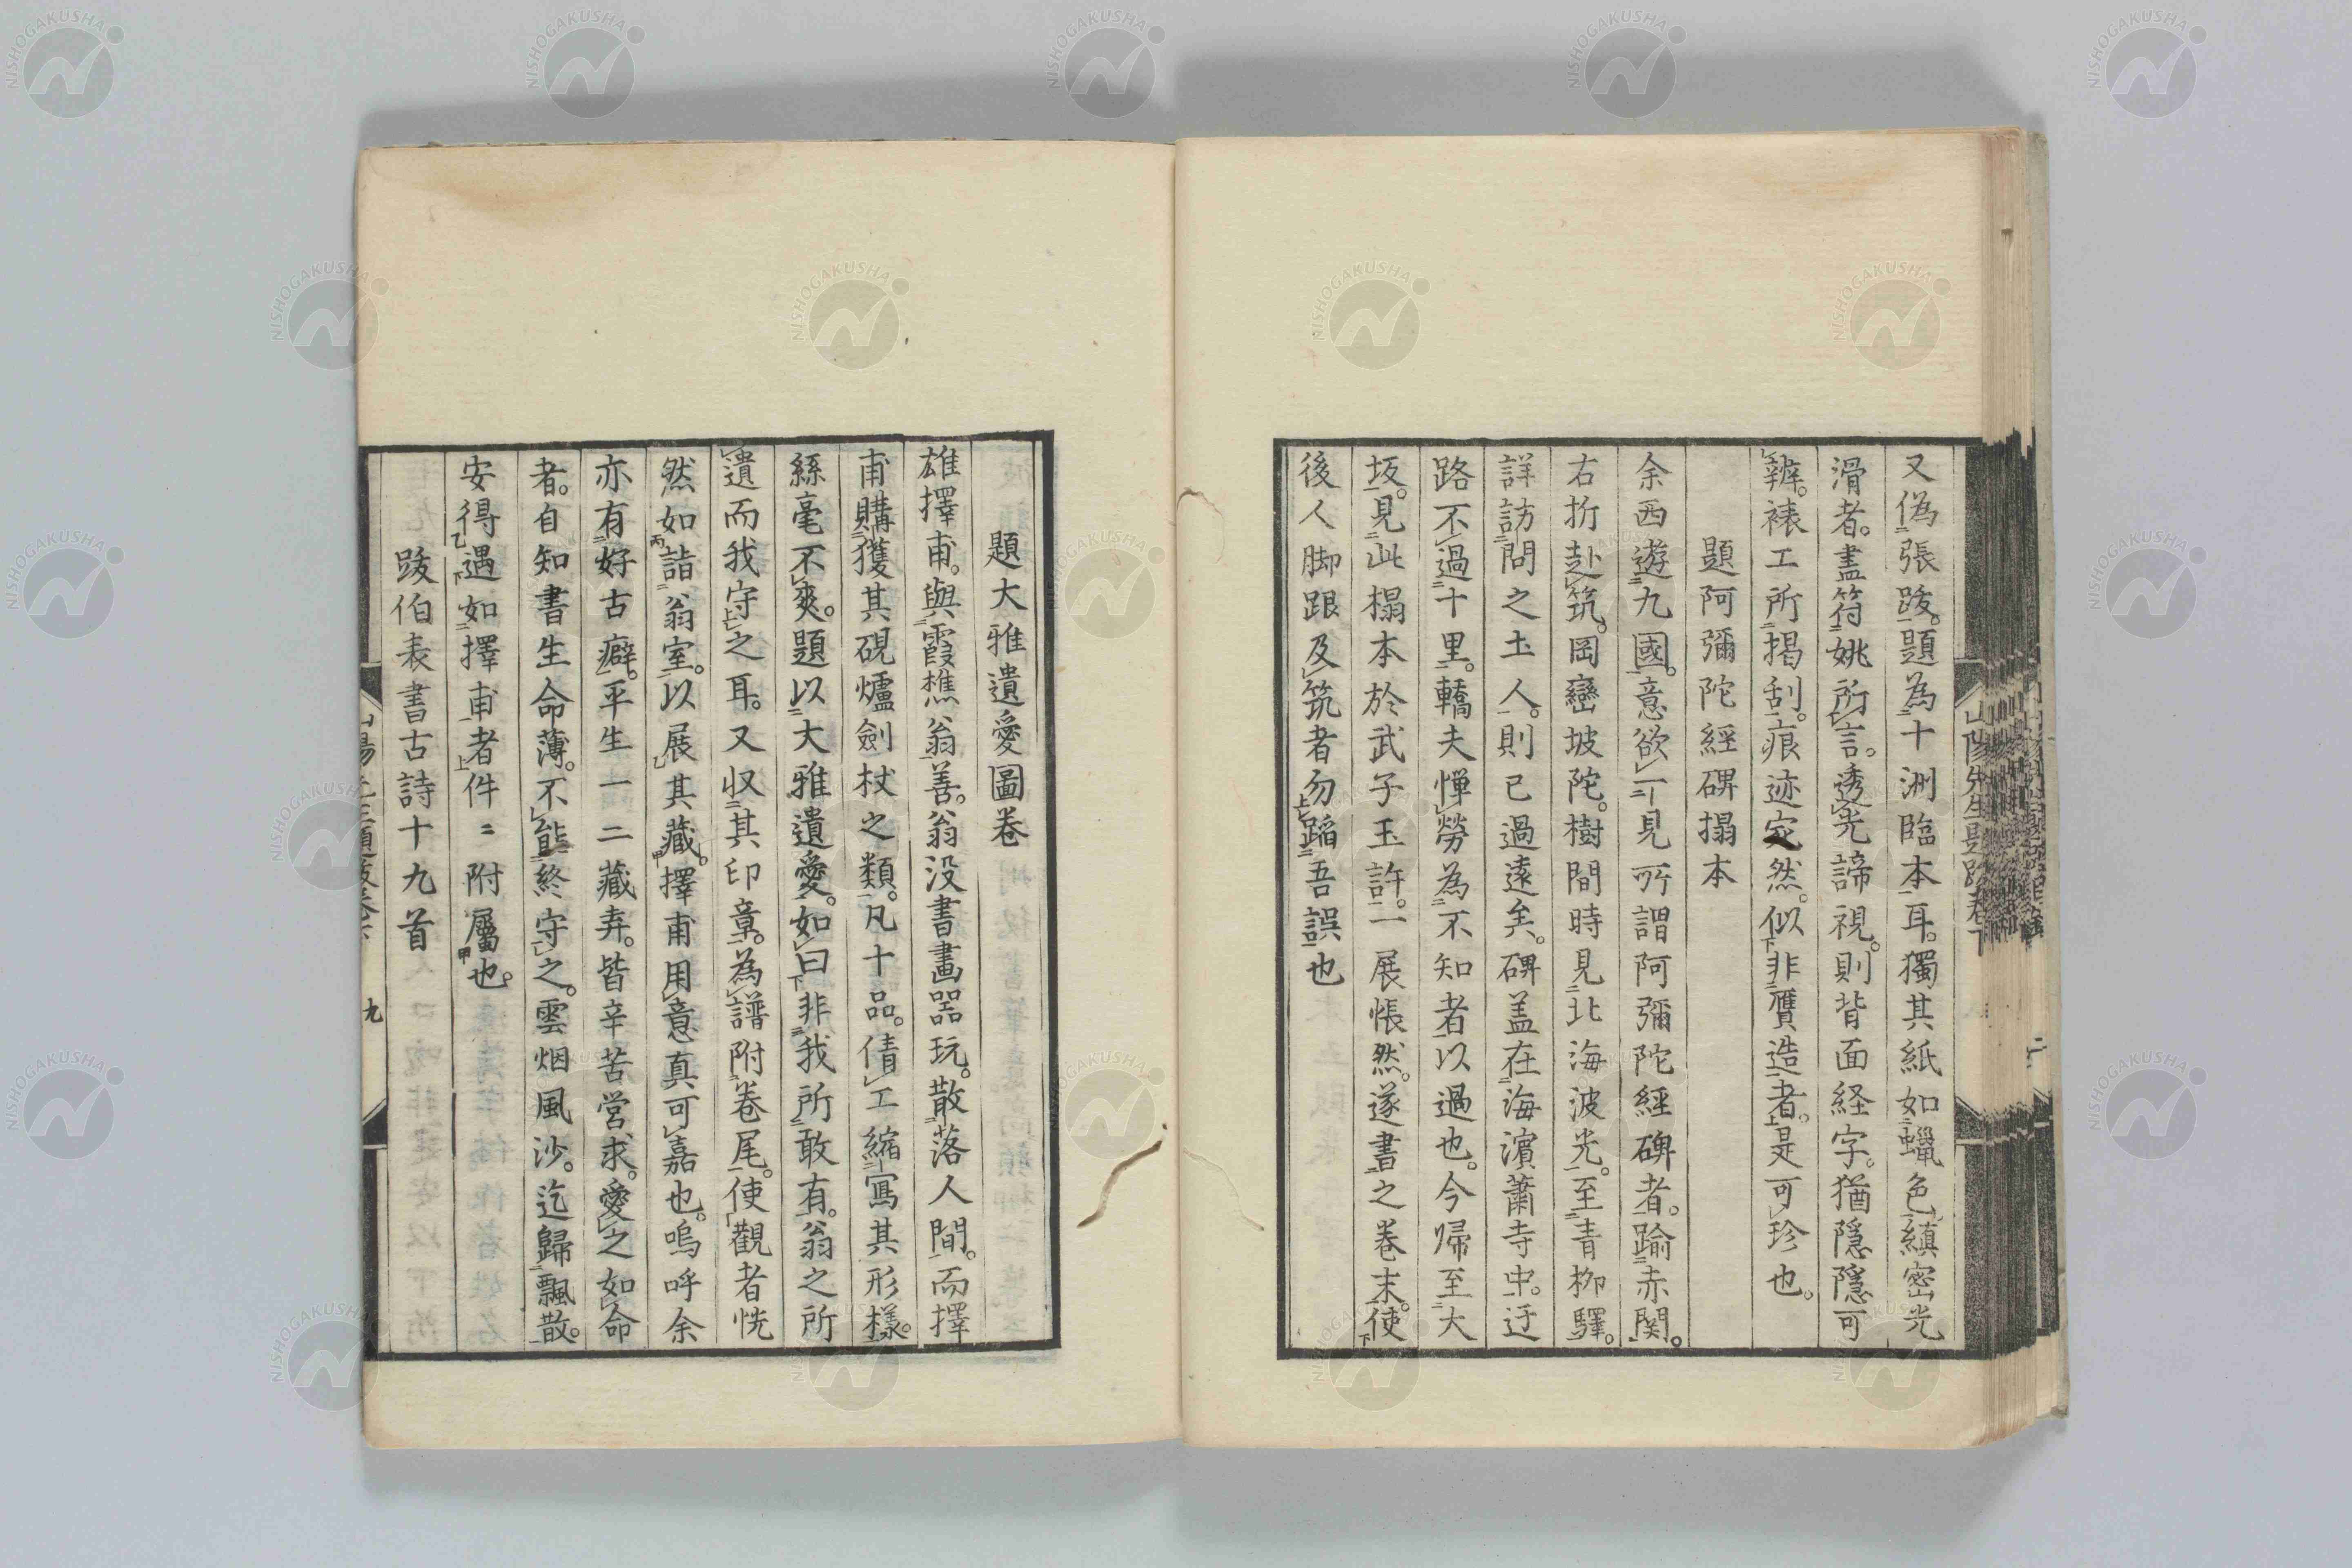 又偽張跋。題為十洲臨本耳。獨其紙如蠟色縝密光
滑者。盡符姚所言。透光諦視。則背面経字。猶隱隱可
辨。裱工所揭刮。痕迹宛然。似非贋造者。是可珍也。
題阿彌陀經碑搨本
余西遊九國。意欲一見所謂阿彌陀經碑者。踰赤関。
右折赴筑。岡巒坡陀。樹間時見北海波光。至青柳驛。
詳訪問之土人。則已過遠矣。碑盖在海濵蕭寺中。迂
路不過十里。轎夫憚勞為不知者以過也。今帰至大
坂。見此搨本於武子玉許。一展悵然。遂書之卷末。使
後人脚跟及筑者勿蹈吾誤也
題大雅遺愛圖卷
雄擇甫。與霞樵翁善。翁没書畫器玩。散落人間。而擇
甫購獲其硯爐劍杖之類。凡十品。倩工縮冩其形樣。
絲毫不爽。題以大雅遺愛。如曰非我所敢有。翁之所
遺而我守之耳。又収其印章。為譜附卷尾。使觀者恍
然如詣翁室。以展其藏。擇甫用意真可嘉也。嗚呼余
亦有好古癖。平生一二藏弆。皆辛苦営求。愛之如命
者。自知書生命薄。不能終守之。雲烟風沙。迄歸飄散。
安得遇如擇甫者件〻附屬也。
跋伯表書古詩十九首
九